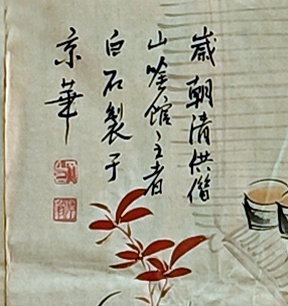 歲朝清供借
山唫館主者
白石製于
京華